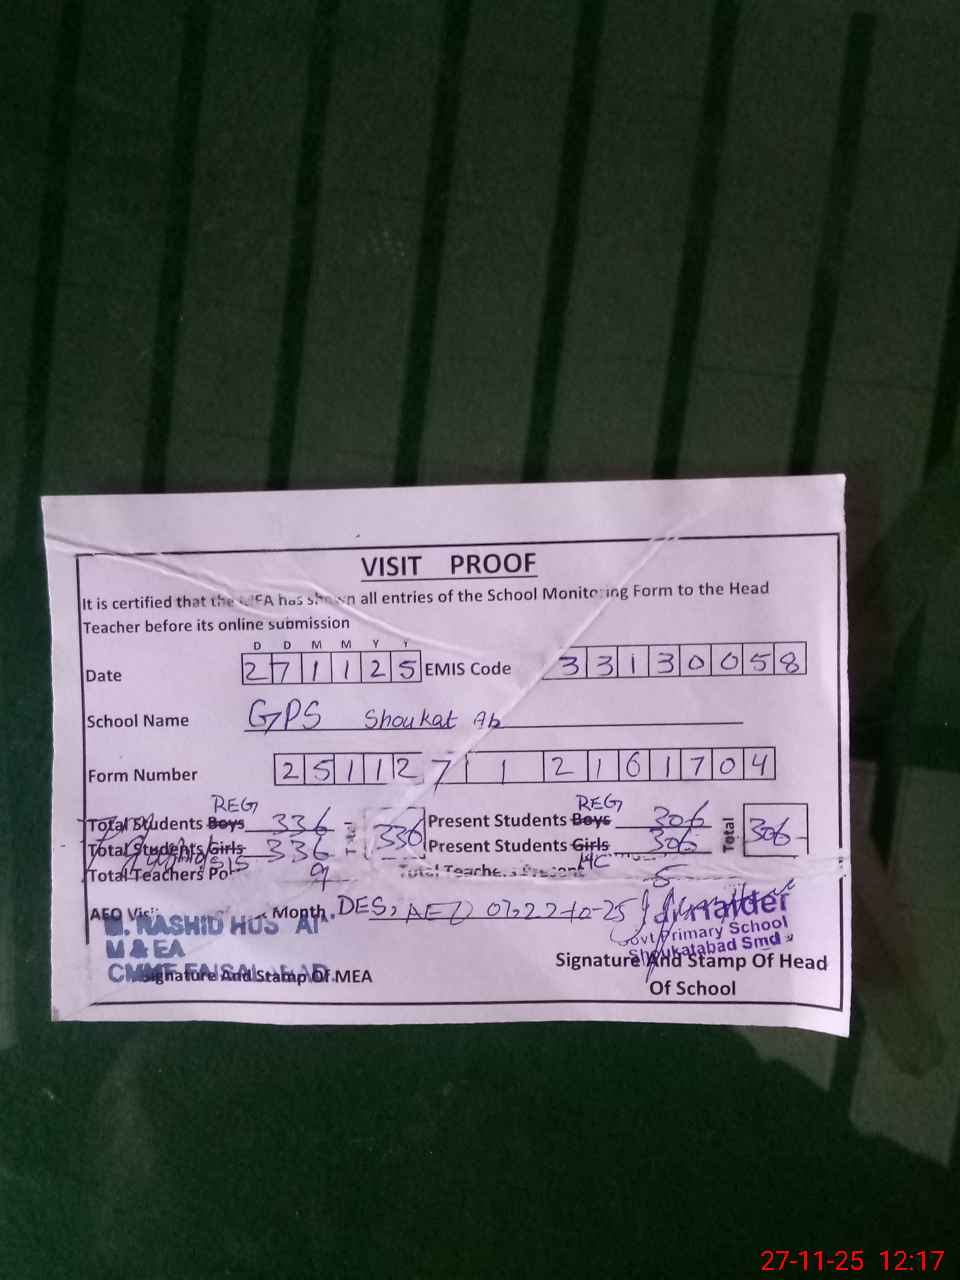 VISIT PROOF
It is certified that the MEA has shown all entries of the School Monitoring Form to the Head
Teacher before its online submission
D D M M Y Y
Date 2 7 1 1 2 5 EMIS Code 3 3 1 3 0 0 5 8
School Name GPS Shoukat Ab
Form Number 2 5 1 1 2 7 1 1 2 1 6 1 7 0 4
REG REG
Total Students Boys 336 Total 336 Present Students Boys 306 Total 306
Total Students Girls 336 Present Students Girls 306
SIS
Total Teachers Po 9 Total Teachers Present 5
AEO Visit Month. DES, AEO 22-10-25
M. RASHID HUS AI
M & EA
CMMF FAISALABAD
Signature And Stamp Of MEA
Haider
Govt Primary School
Shoukatabad Smd
Signature And Stamp Of Head
Of School
27-11-25 12:17